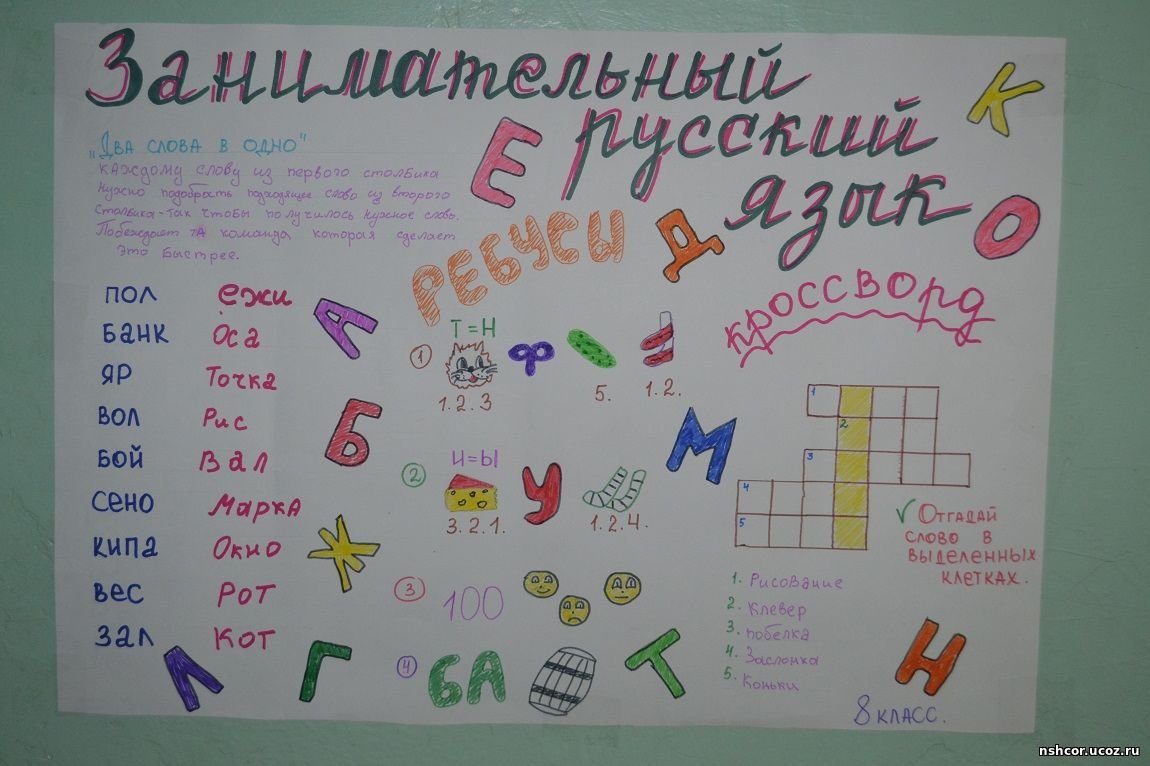 Занимательный
русский
язык
„Два слова в одно"
каждому слову из первого столбика
нужно подобрость подходящее слово из второго
столбика-так чтобы получилось нужное слово.
Побеждает та команда которая сделает
это быстрее.
пол ежи
банк Оса
яр Точка
вол Рис
бой Вал
сено Марка
кипа Окно
вес Рот
зал Кот
А
Б
Ж
Л
Г
Е
Д
К
О
РЕБУСЫ
1
Т=Н
Ф
1.2.3 5. 1.2.
2
И=Ы
У
3.2.1. 1.2.4.
3
100
4
БА
М
Т
кроссворд
1
2
3
4
5
✓ Отгадай
слово в
выделенных
клетках.
1. Рисование
2. Клевер
3. Побелка
4. Заслонка
5. Коньки
Н
8 класс.
nshcor.ucoz.ru